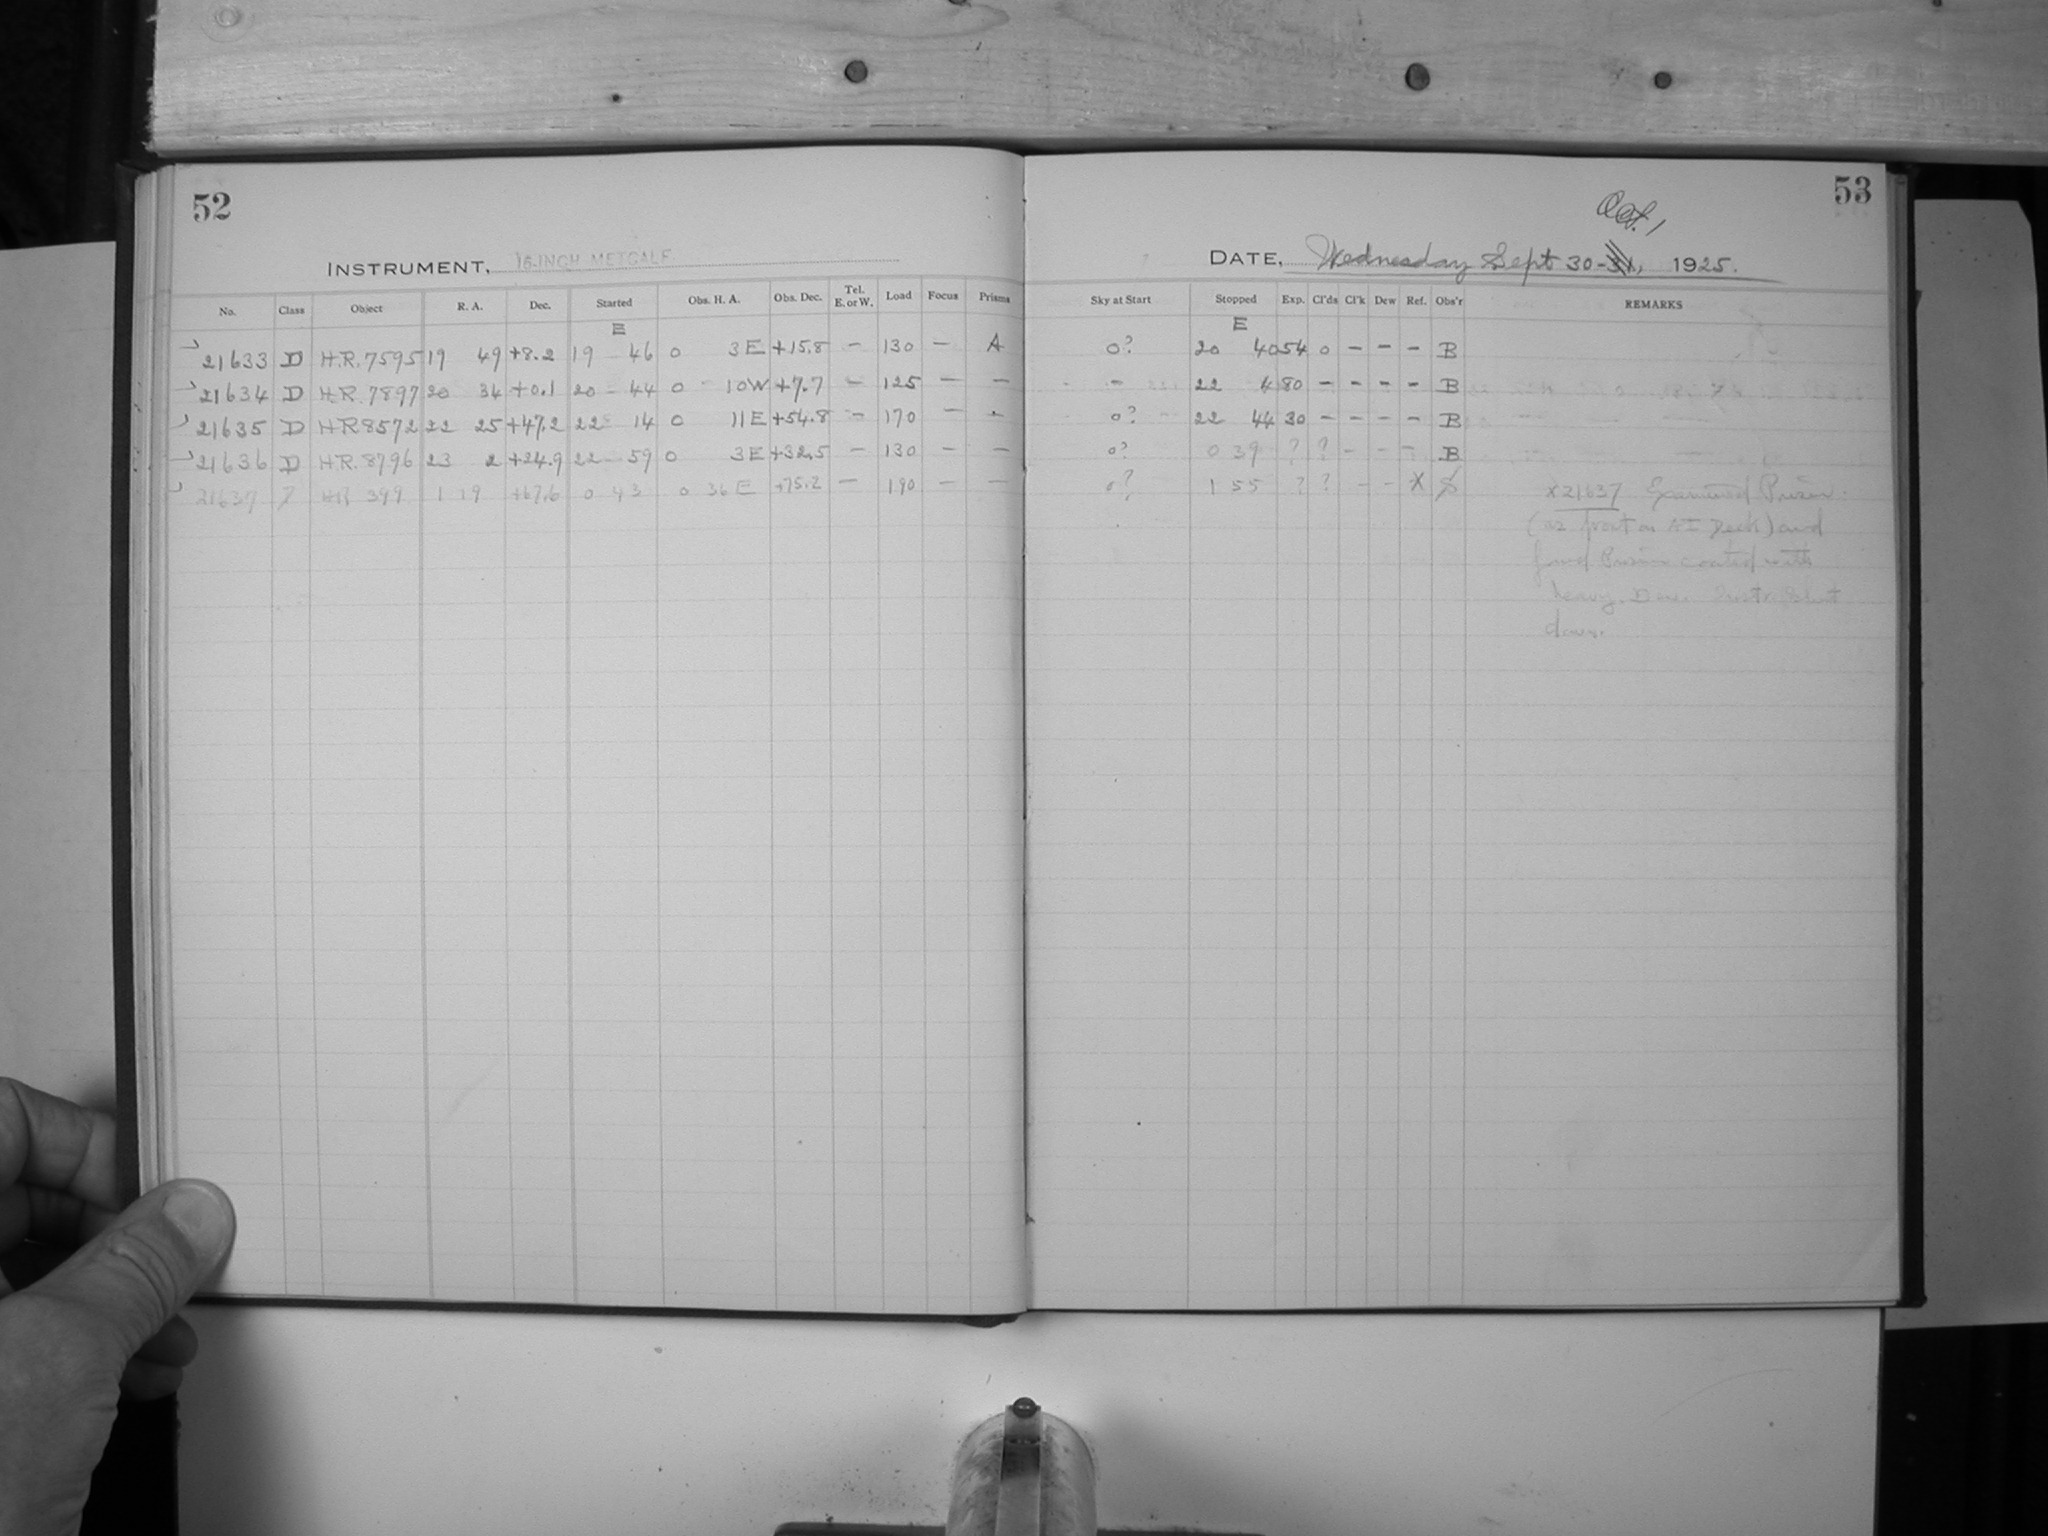 52
INSTRUMENT, 16-INCH METCALF
No. Class Object R. A. Dec. Started Obs. H. A. Obs. Dec. Tel. E. or W. Load Focus Prisms
E
21633 D H.R. 7595 19 49 +8.2 19 46 0 3 E +15.8 — 130 — A
21634 D H.R. 7897 20 34 +0.1 20 44 0 10 W +7.7 — 125 — —
21635 D H.R. 8572 22 25 +47.2 22 14 0 11 E +54.8 — 170 — -
21636 D H.R. 8796 23 2 +24.9 22 59 0 3 E +32.5 — 130 — —
21637 H.R. 399 1 19 +67.6 0 43 0 36 E +75.2 — 190 — —
53
Oct. 1
DATE, Wednesday Sept 30-31, 1925.
Sky at Start Stopped Exp. Cl'ds Cl'k Dew Ref. Obs'r REMARKS
E
0? 20 40 54 0 - - - B
- 22 4 80 - - - - B
0? 22 44 30 - - - - B
0? 0 39 ? ? - - - B
0? 1 55 ? ? - - X
X 21637 Examined Prism
(as front on AI Deck) and
found Prism coated with
heavy Dew. Instr. Shut
down.